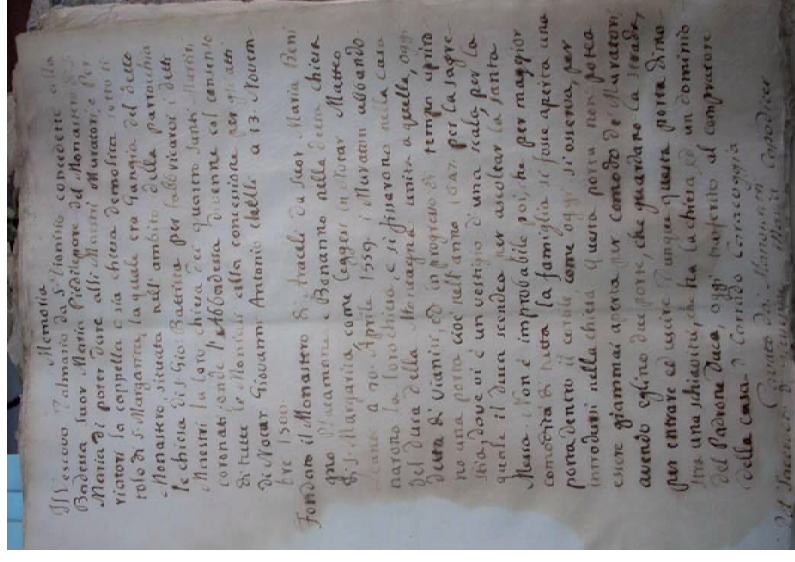 Memoria
Il Vescovo Palmario da S. Dionisio concedette alla
Badessa Suor Maria Piedilepore del Monastero di S.
Maria di poter dare alli Maestri Muratori, e Per
riatori la cappella o sia chiesa demolita sotto ti
tolo di S. Margarita, la quale era Gangia del detto
Monastero, situata nell'ambito della parrocchia
le chiesa di S. Gio: Battista per fabbricarvi i detti
Maestri la loro chiesa dei quattro Santi Martiri
coronati, onde l'Abbadessa divenne col consenso
di tutte le Monache alla concessione per gli atti
di Notar Giovanni Antonio Chelli a 13. Novem
bre 1500.
Fondato il Monastero di Araceli da Suor Maria Beni
gno e Bonanno nella detta chiesa
di S. Margarita, come leggesi in Notar Matteo
a 20. Aprile 1559. i Muratori abbando
narono la loro chiesa, e si finirono nella casa
del Duca della Montagna unita a quella, oggi
detta di Viannisi, ed in progresso di tempo apriro
no una porta cioè nell'anno per la sagre
stia, dove vi è un vestigio d'una scala, per la
quale il Duca scendea per ascoltar la santa
Messa. Non è improbabile poi, che per maggior
comodità di tutta la famiglia si fosse aperta una
porta dentro il cortile come oggi si osserva, per
introdursi nella chiesa. Questa porta non potea
essere giammai aperta per comodo de' Muratori
avendo eglino due porte, che guardano la strada,
per entrare ed uscire. Dunque questa porta dimo
stra una schiavitù, che ha la chiesa ed un dominio
del Padrone Duca, oggi trasferito al compratore
della casa D. Corrado Carraccggia